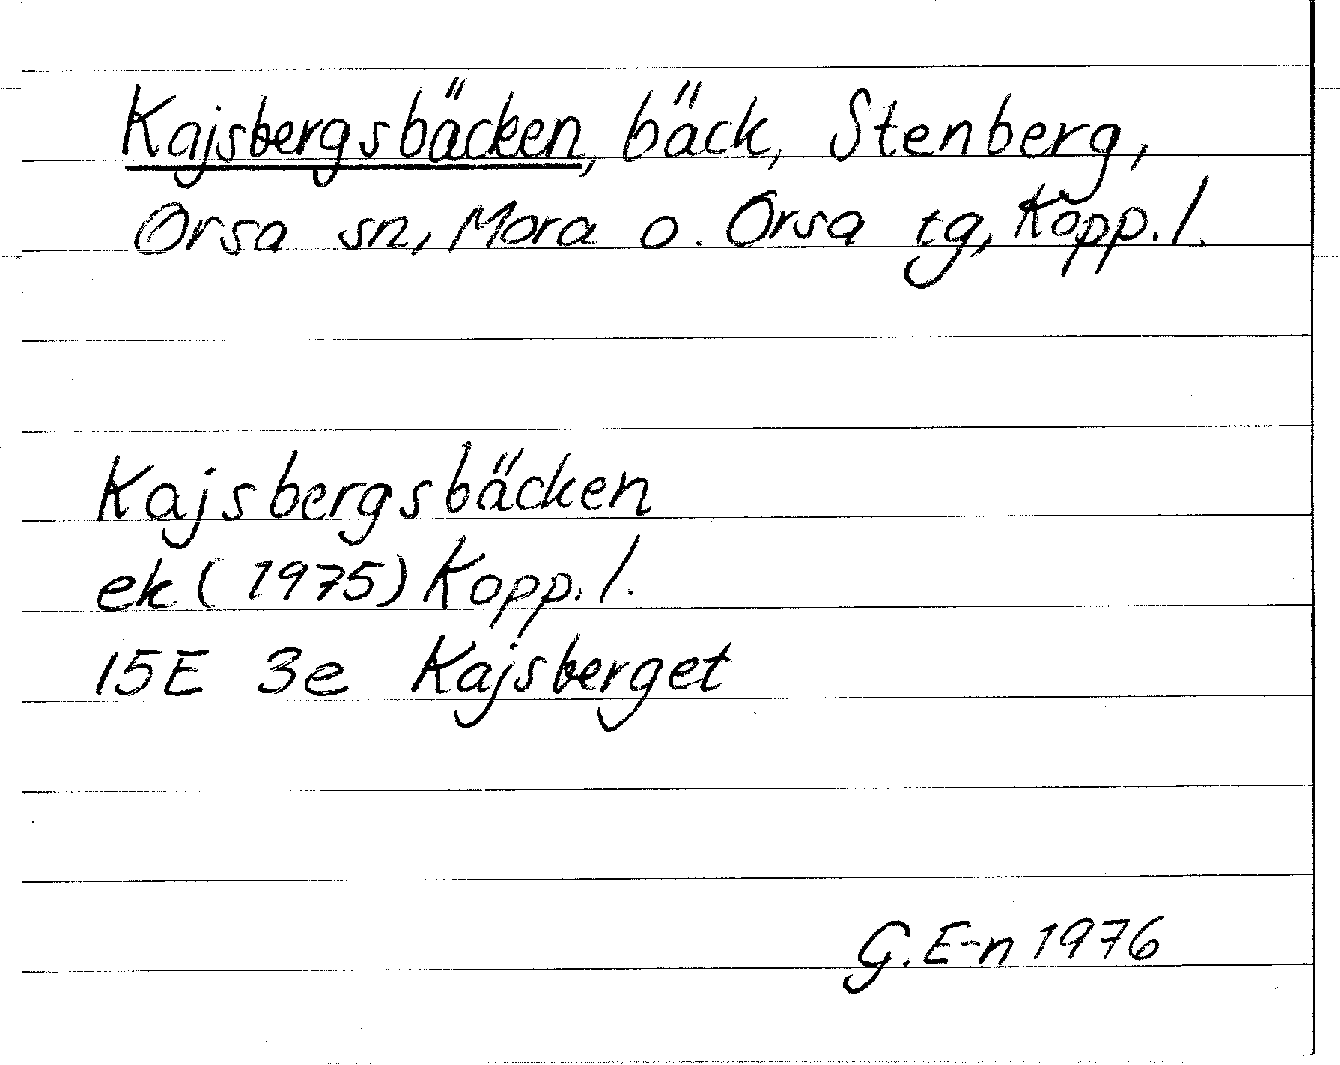 Kajsbergsbäcken, bäck, Stenberg,
Orsa sn, Mora o. Orsa tg, Kopp. l.
Kajsbergsbäcken
ek (1975) Kopp. l.
15E 3e Kajsberget
G. E-n 1976